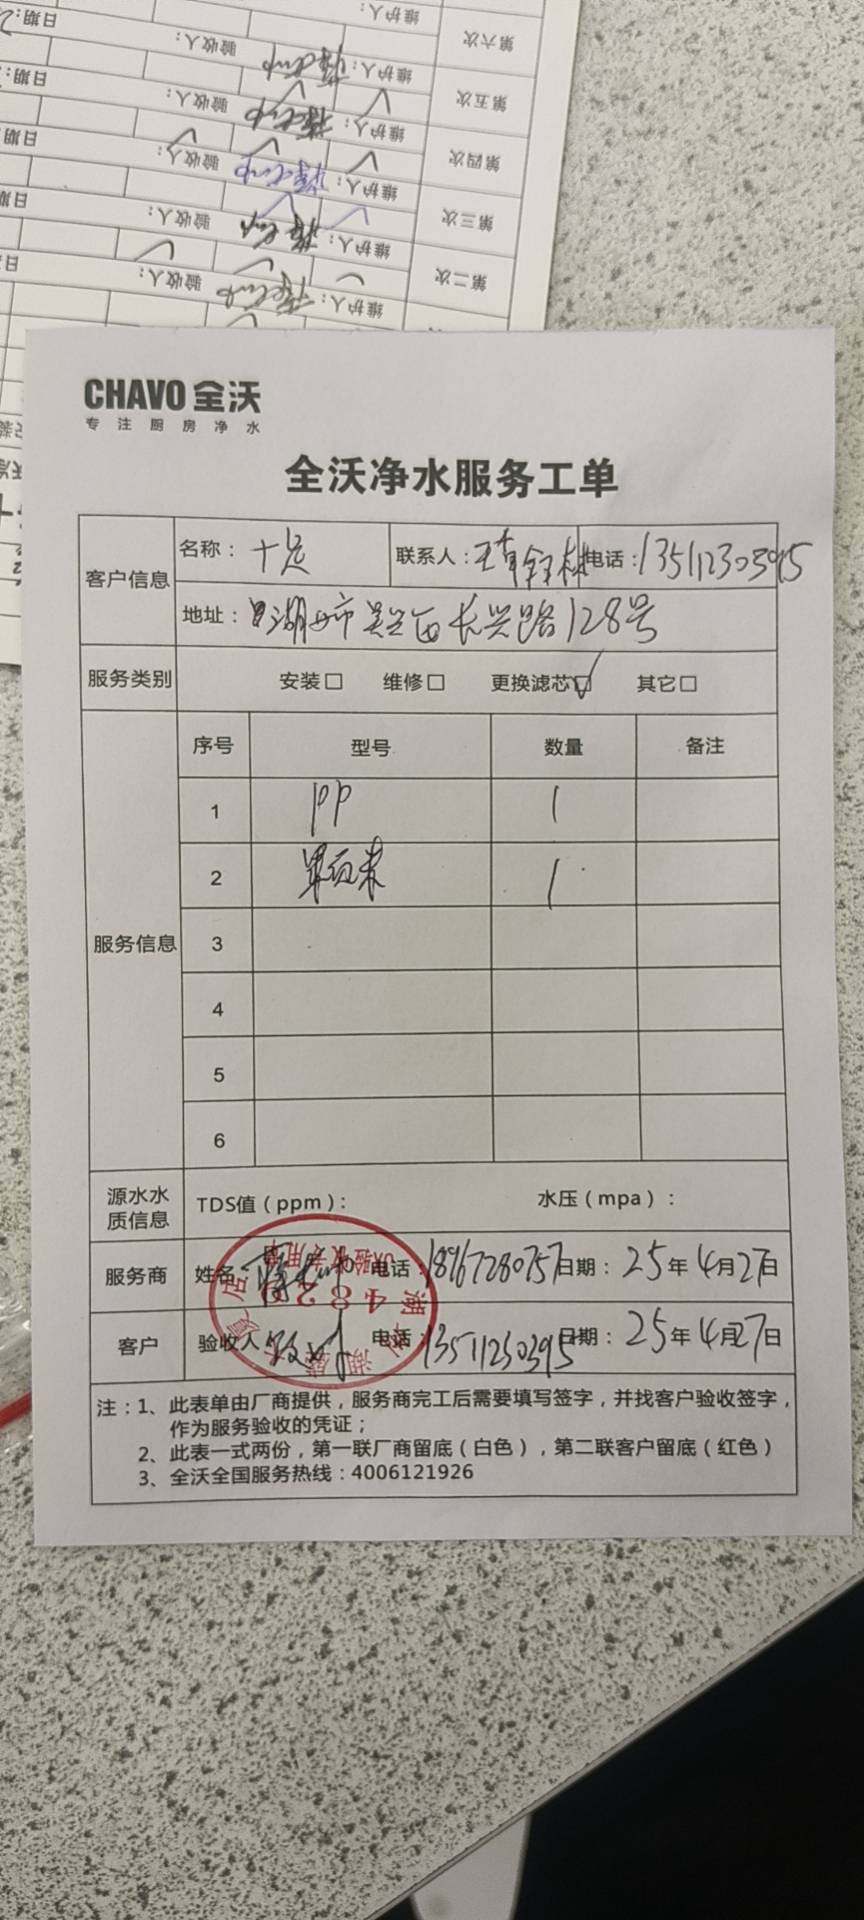 第六次
维护人：
验收人：
日期：
第五次
维护人：
验收人：
日期：
第四次
维护人：
验收人：
日期
第三次
维护人：
验收人：
日期
第二次
维护人：
验收人：
日
维护人：
CHAVO 全沃
专注厨房净水
全沃净水服务工单
客户信息
名称： 联系人： 电话：13511230395
地址： 湖州市吴兴区长兴路128号
服务类别 安装□ 维修□ 更换滤芯☑ 其它□
服务信息
序号 型号 数量 备注
1 PP 1
2 1
3
4
5
6
源水水质信息 TDS值（ppm）： 水压（mpa）：
服务商 姓名 电话：18967280757 日期：25年4月27日
客户 验收人 电话：13511230395 日期：25年4月27日
注：1、此表单由厂商提供，服务商完工后需要填写签字，并找客户验收签字，
作为服务验收的凭证；
2、此表一式两份，第一联厂商留底（白色），第二联客户留底（红色）
3、全沃全国服务热线：4006121926